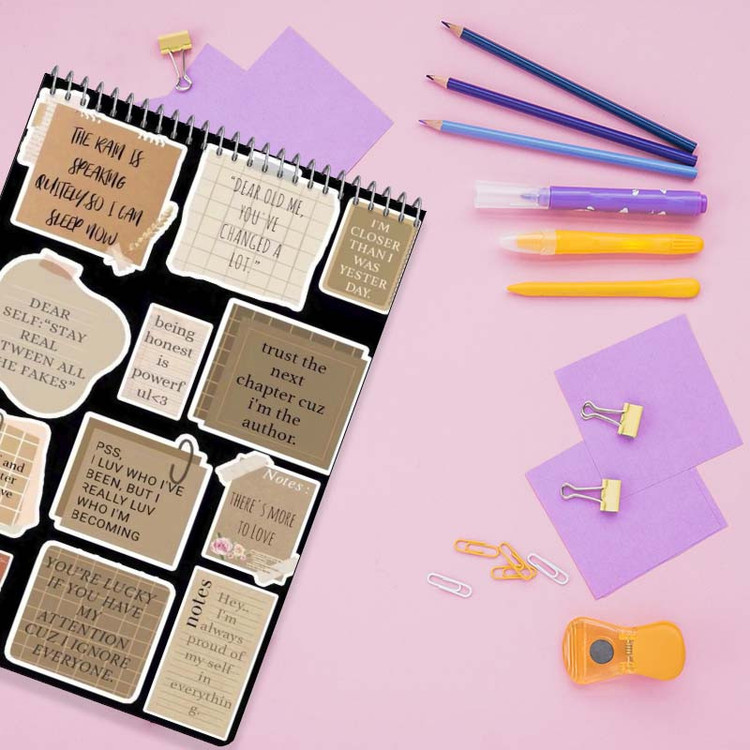 THE RAIN IS
SPEAKING
QUITELY SO I CAN
SLEEP NOW
"DEAR OLD ME,
YOU'VE
CHANGED A
LOT,"
I'M
CLOSER
THAN I
WAS
YESTER
DAY.
DEAR
SELF:"STAY
REAL
TWEEN ALL
HE FAKES"
being
honest
is
powerf
ul<3
trust the
next
chapter cuz
i'm the
author.
and
ter
ve
PSS,
I LUV WHO I'VE
BEEN, BUT I
REALLY LUV
WHO I'M
BECOMING
Notes:
THERE'S MORE
TO LOVE
YOU'RE LUCKY
IF YOU HAVE
MY
ATTENTION
CUZ I IGNORE
EVERYONE.
notes
Hey,
I'm
always
proud of
my self
in
everythin
g.